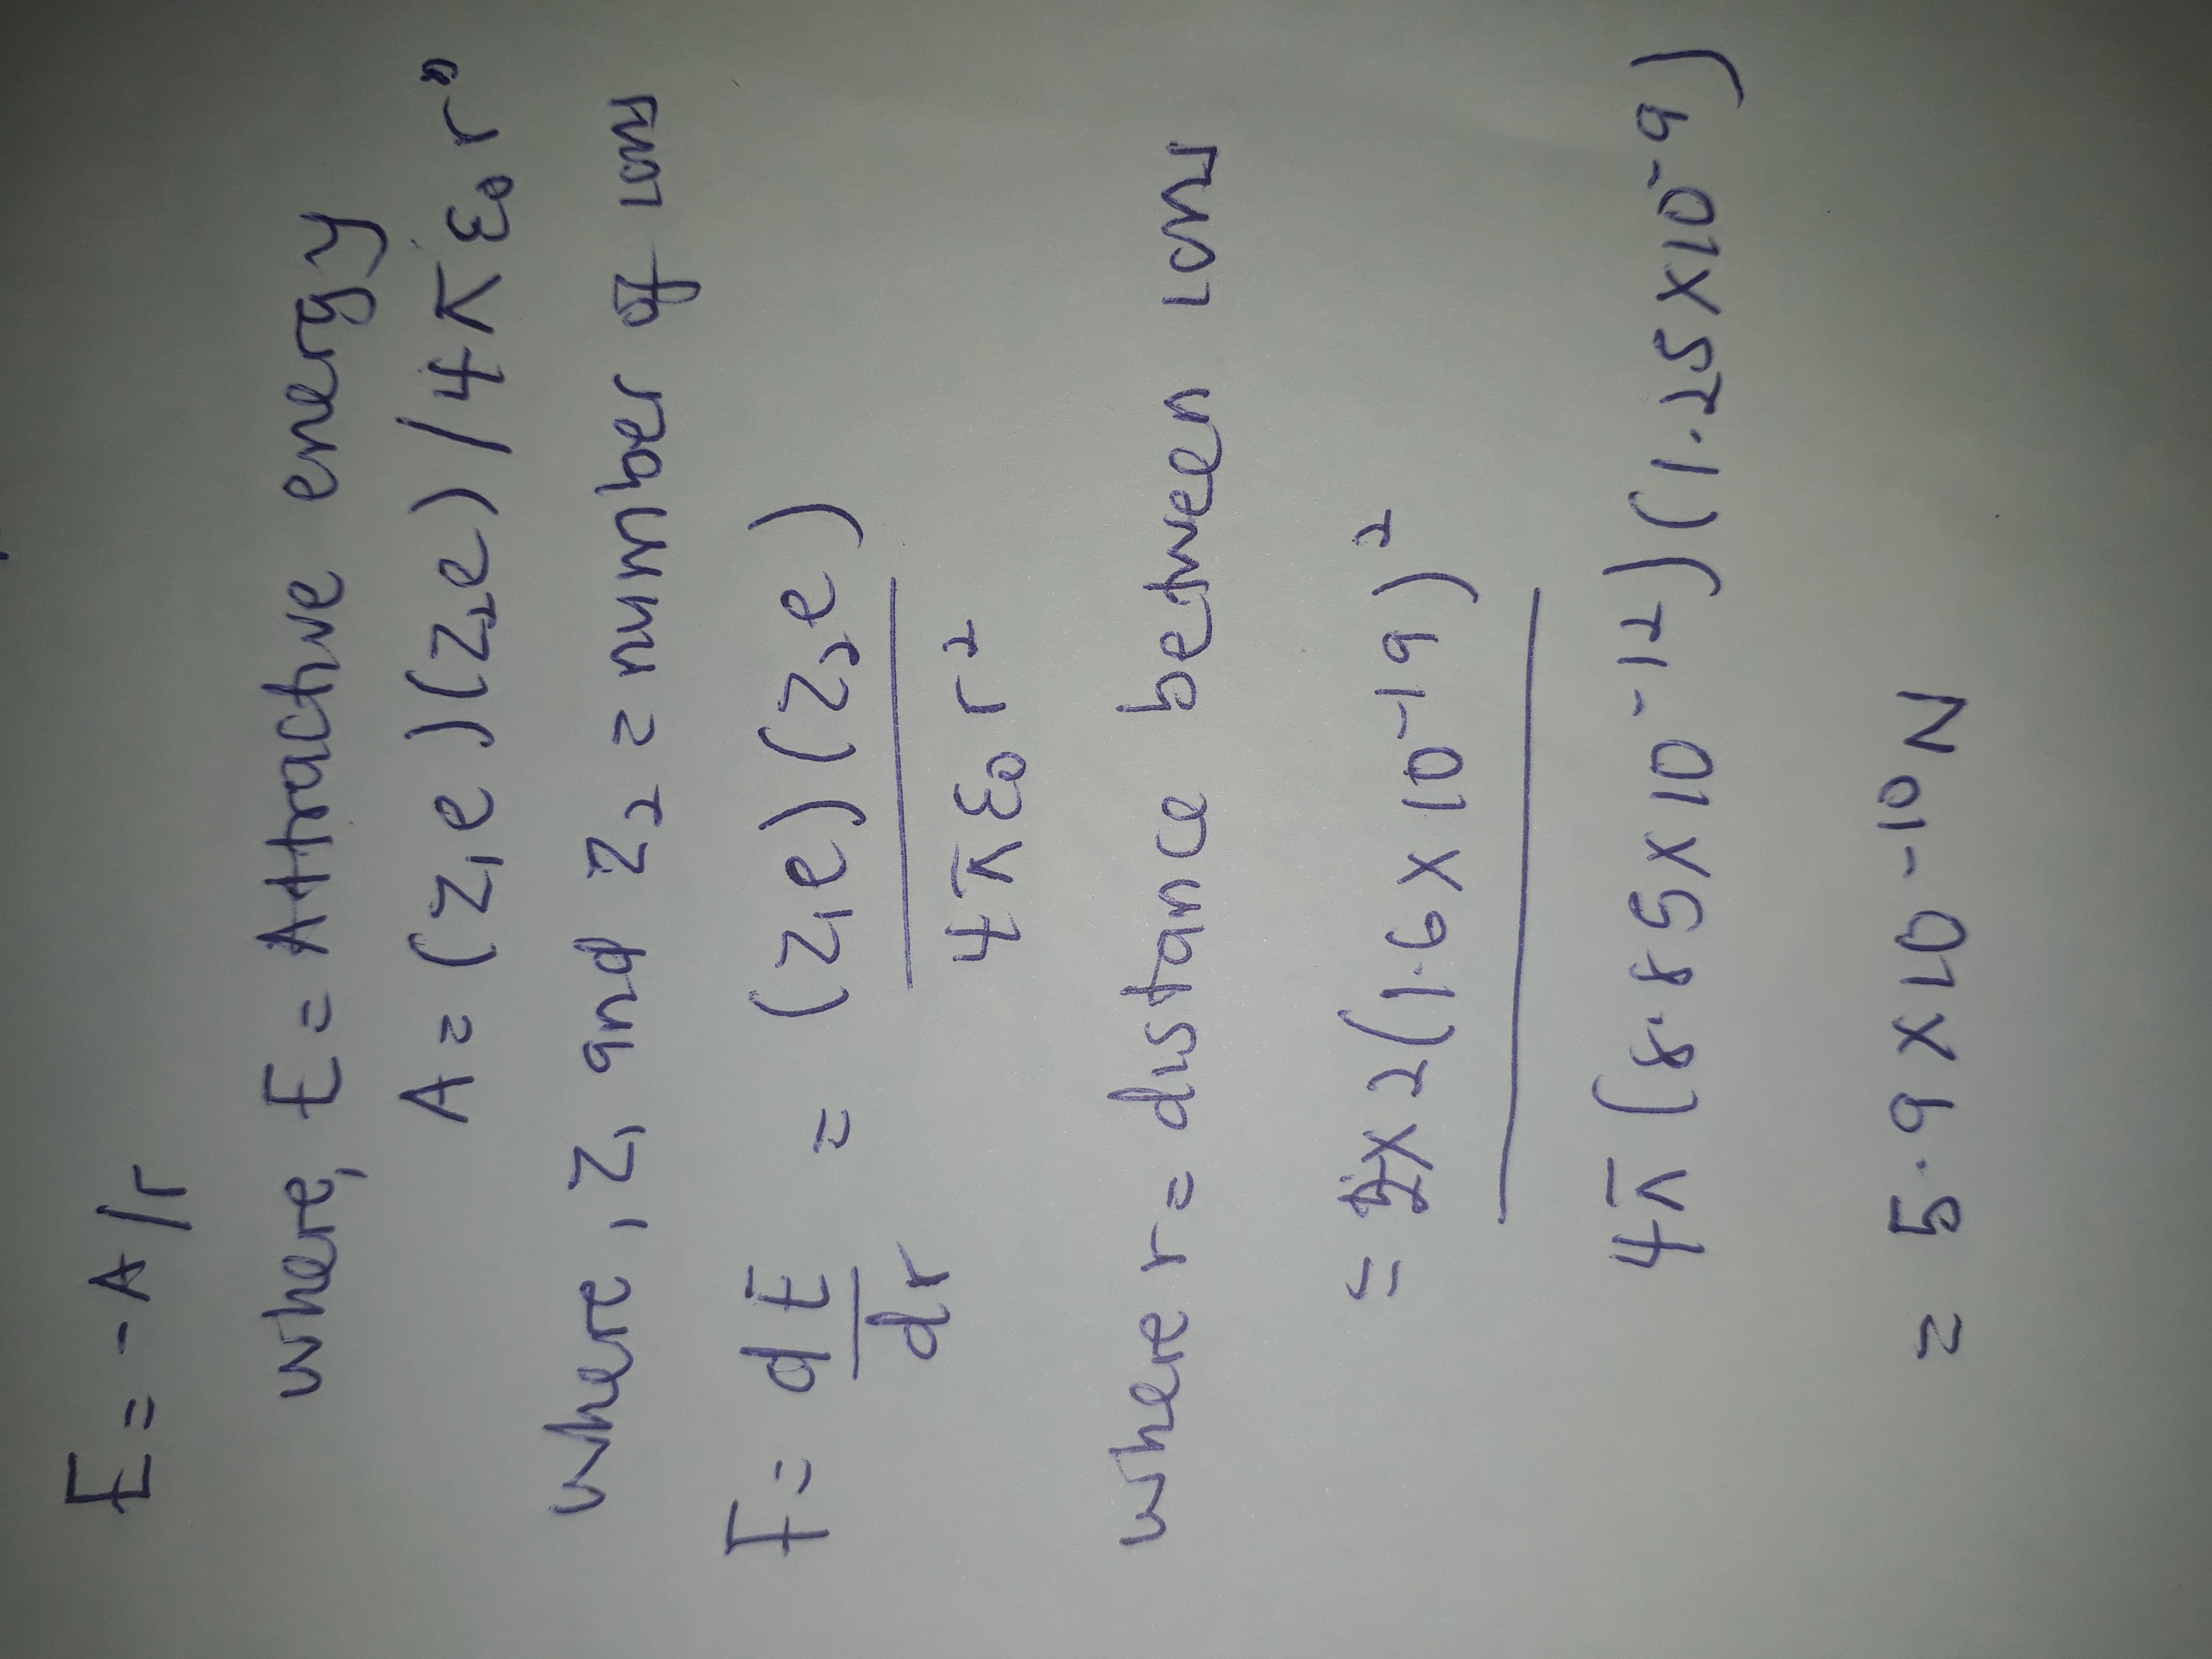 E = - A/r
where, E = Attractive energy
A = (Z₁e)(Z₂e)/4π ε₀ r²
where, Z₁ and Z₂ = number of ion
F = dE/dr = (Z₁e)(Z₂e)/4π ε₀ r²
where r = distance between ion
= 2×2(1.6×10⁻¹⁹)²
4π(8.85×10⁻¹²)(1.25×10⁻⁹)
= 5.9×10⁻¹⁰ N